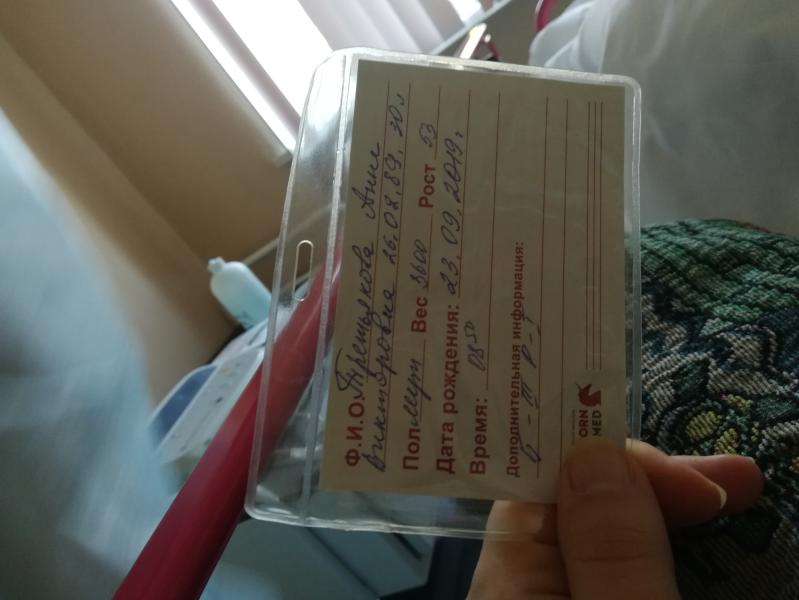 Ф.И.О. Третьякова Анна
Викторовна 26.08.89. 30 л
Пол муж Вес 3600 Рост 53
Дата рождения: 23.09.2019г.
Время: 08 50
Дополнительная информация:
III P-I
ORN
MED